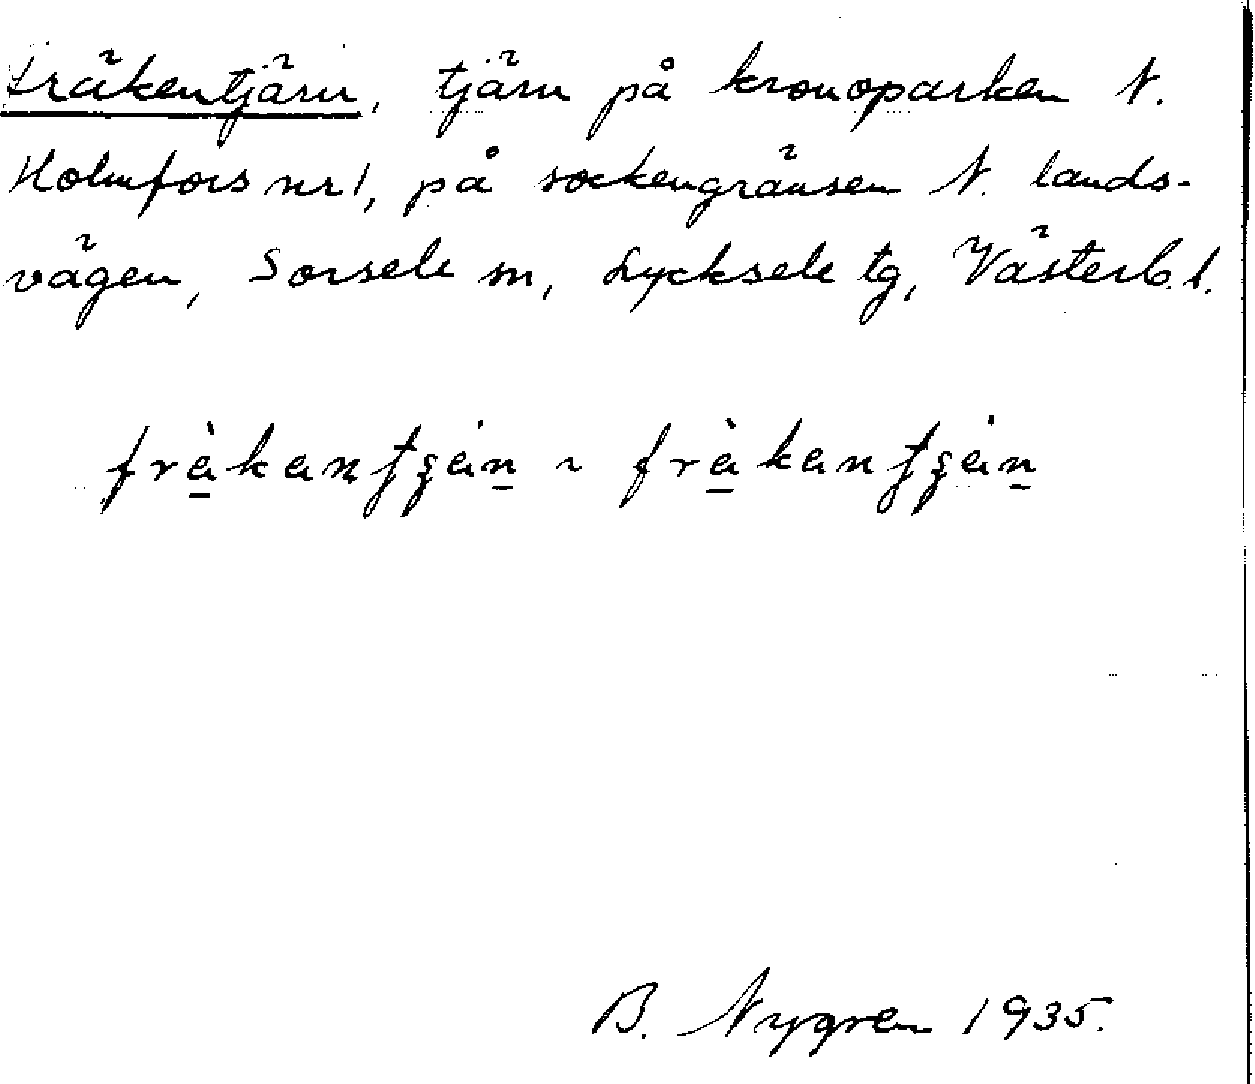 Fräkentjärn, tjärn på kronoparken N.
Holmfors nr 1, på sockengränsen N. lands-
vägen, Sorsele sn, Lycksele tg, Västerb. l.
B. Nygren 1935.